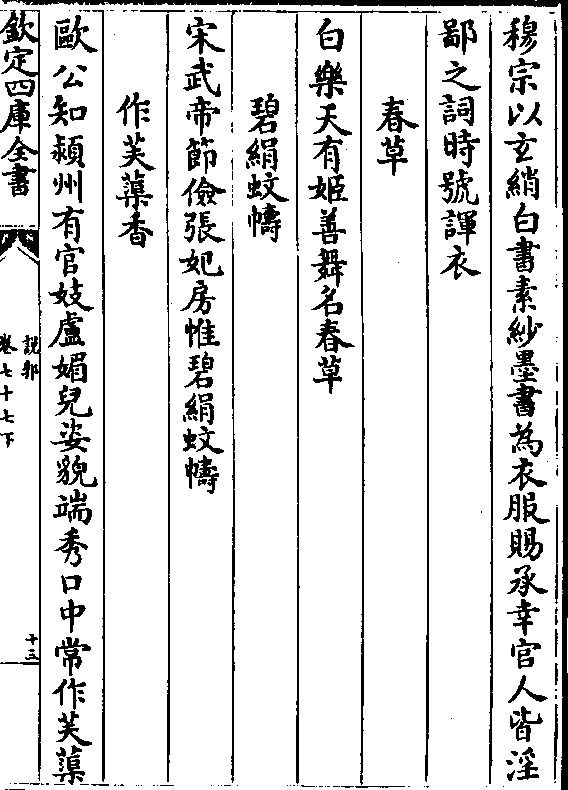 穆宗以玄綃白書素紗墨書為衣服賜承幸官人皆淫
鄙之詞時號諢衣
春草
白樂天有姬善舞名春草
碧絹蚊幬
宋武帝節儉張妃房惟碧絹蚊幬
作芙蕖香
歐公知潁州有官妓盧媚兒姿貌端秀口中常作芙蕖
欽定四庫全書
説郛
卷七十七下
十三